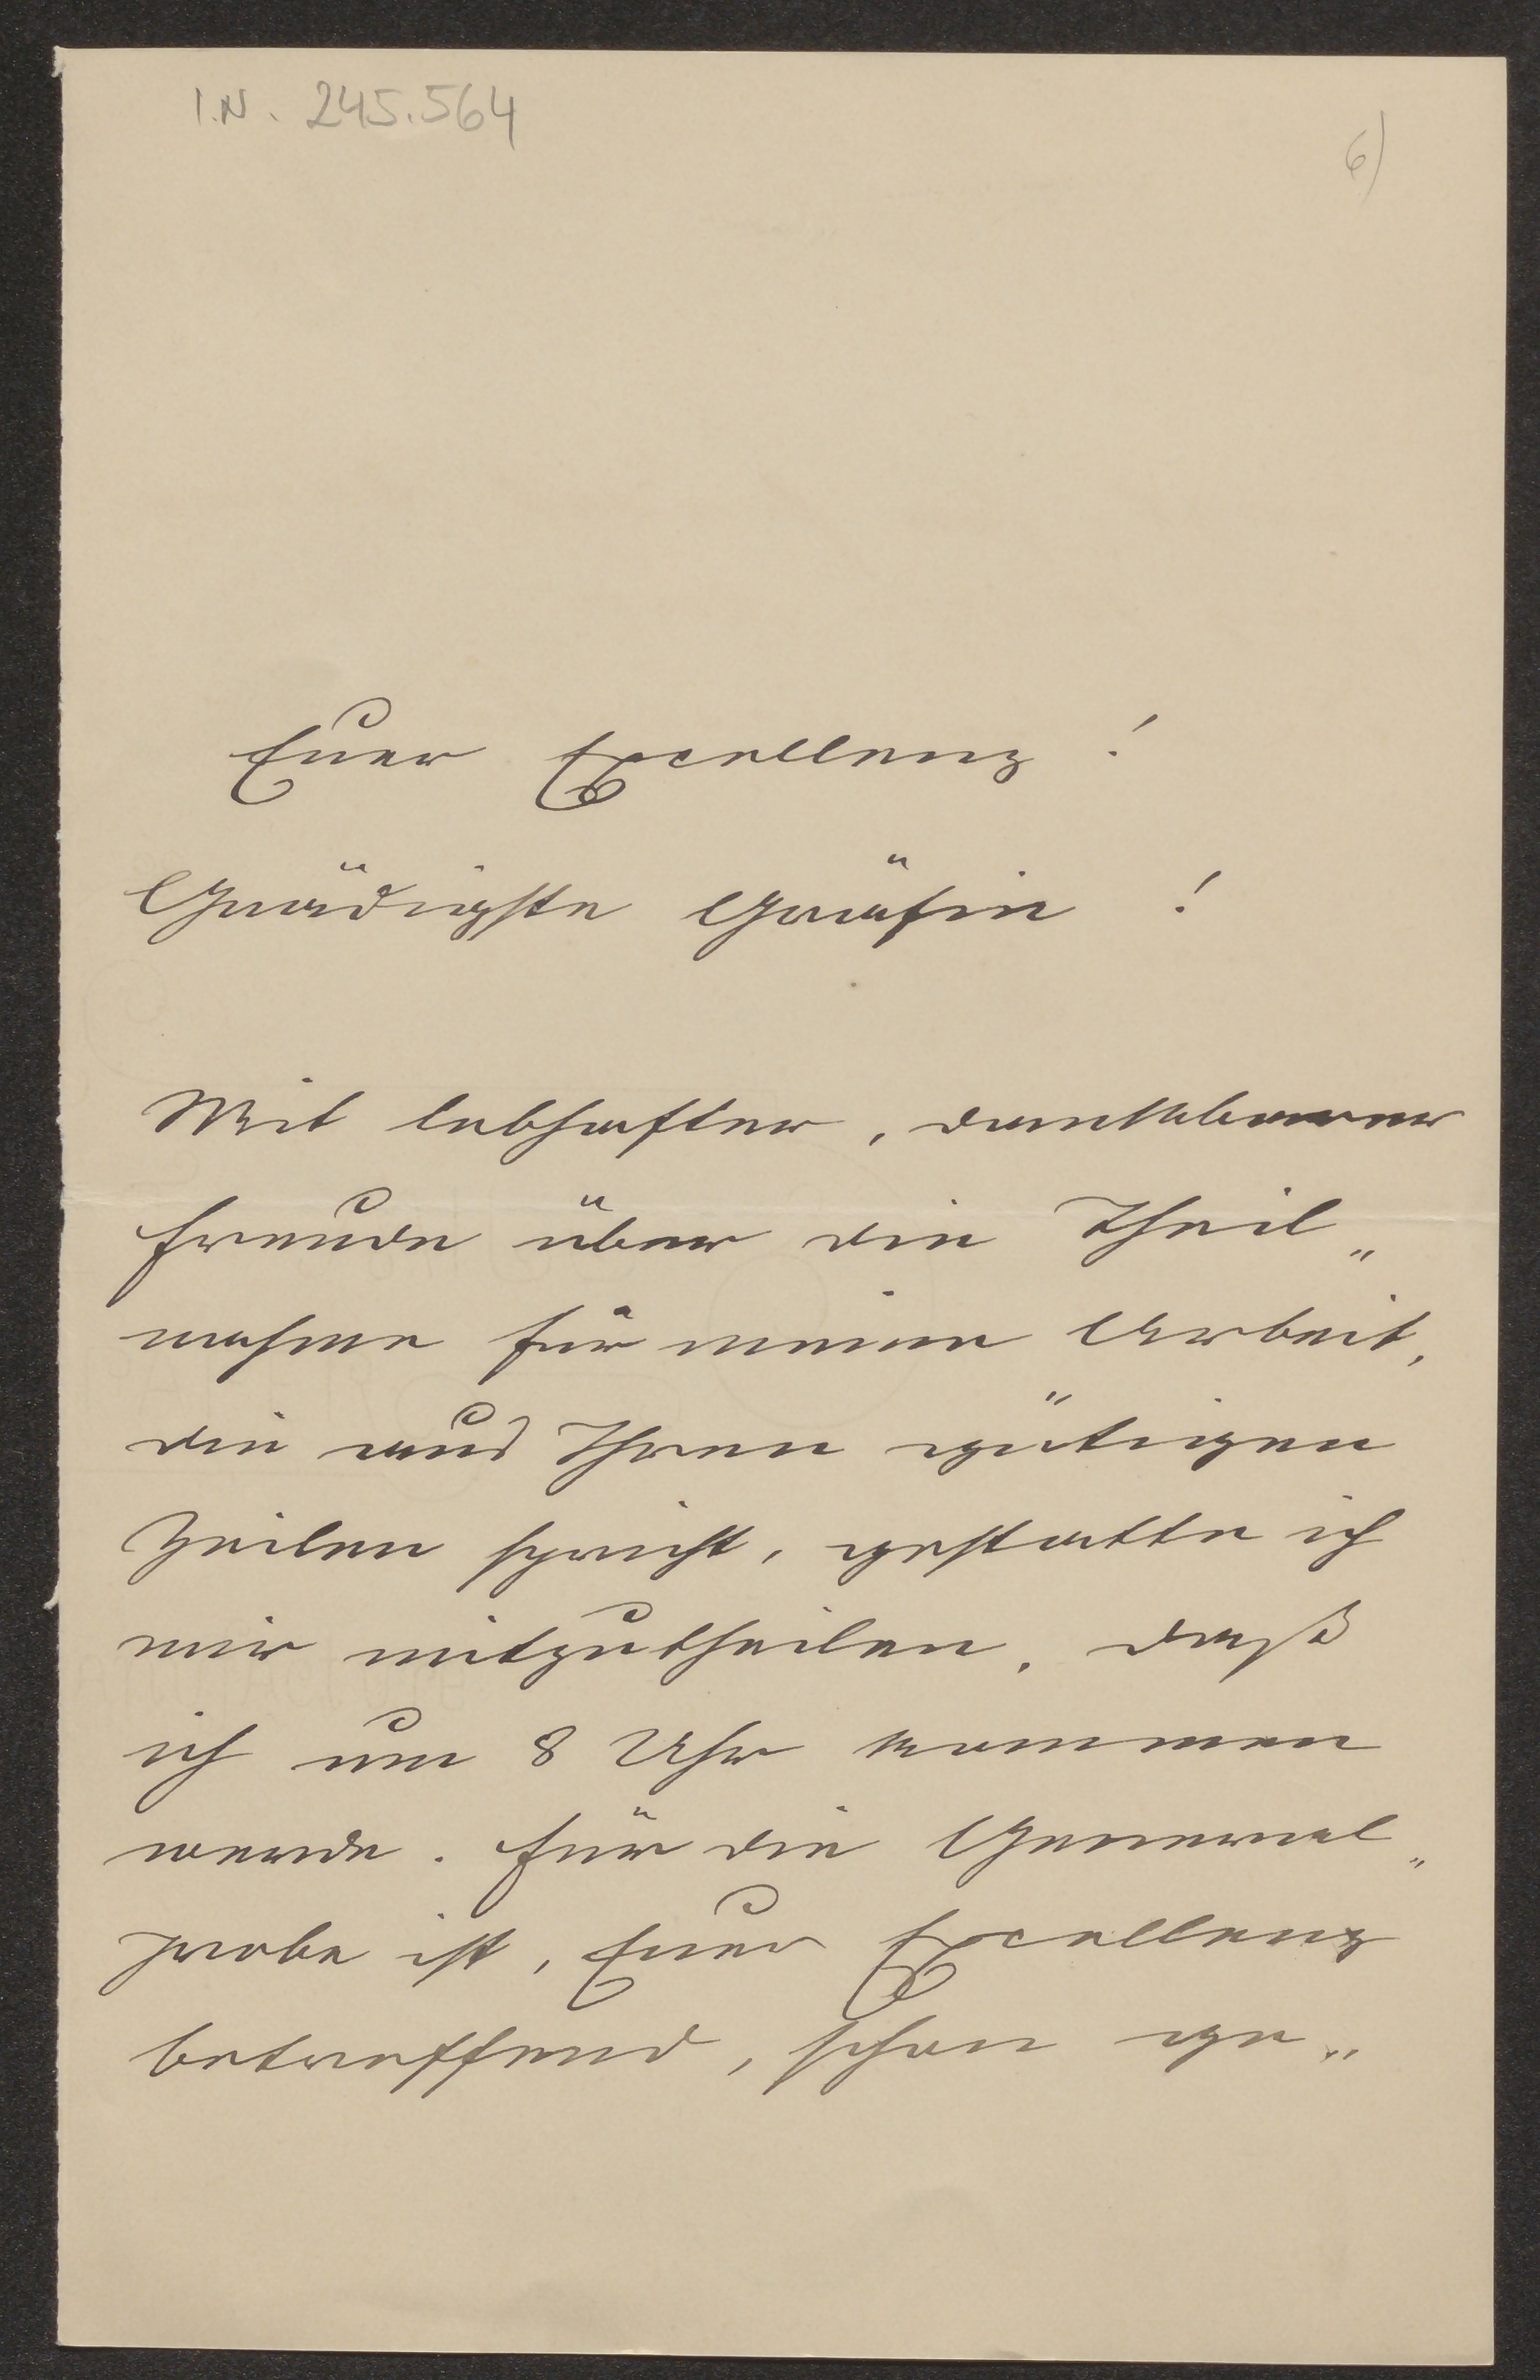 I.N. 245.564
6)
Euer Excellenz !
Gnädigste Gräfin !
Mit lebhafter, dankbarer
Freude über die Theil„
nahme für meine Arbeit,
die aus Ihren gütigen
Zeilen spricht, gestatte ich
mir mitzutheilen, daß
ich um 8 Uhr kommen
werde. Für die General„
probe ist, Euer Excellenz
betreffend, schon ge„